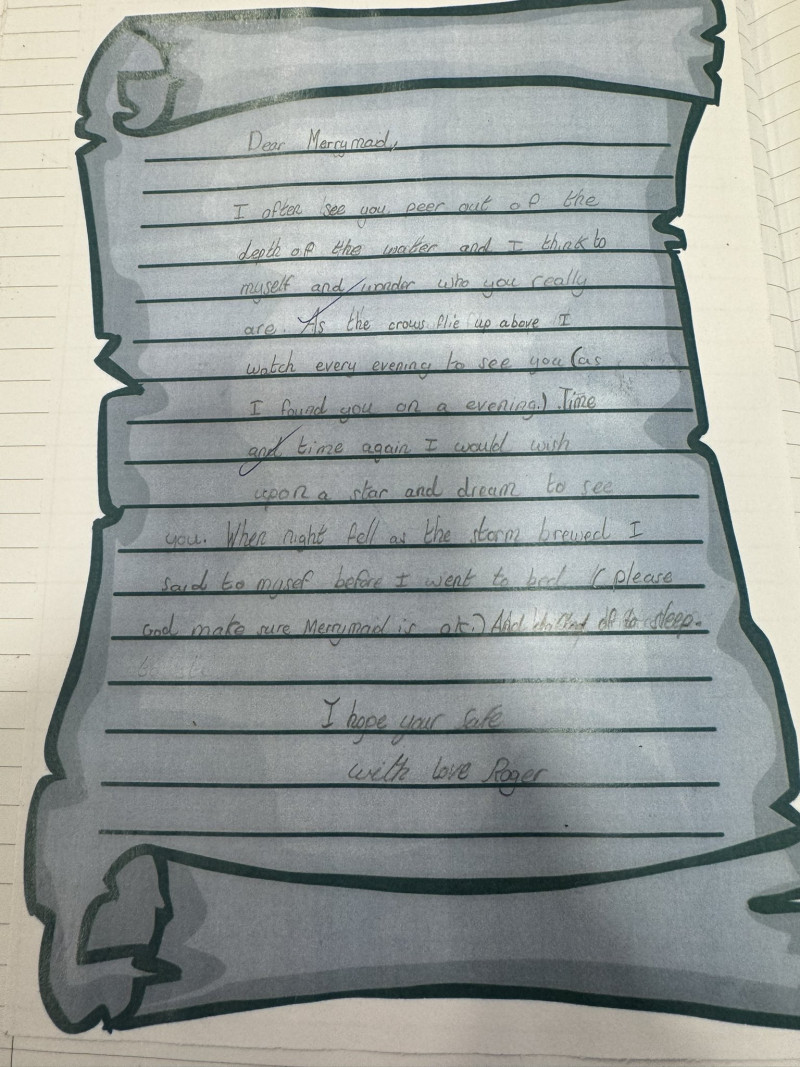 Dear Merrymaid,
I often see you peer out of the
depth of the water and I think to
myself and wonder who you really
are. As the crows flie up above I
watch every evening to see you (as
I found you on a evening.) Time
and time again I would wish
upon a star and dream to see
you. When night fell as the storm brewed I
said to mysef before I went to bed ( please
God make sure Merrymaid is ok.) And off to sleep.
I hope your safe
with love Roger